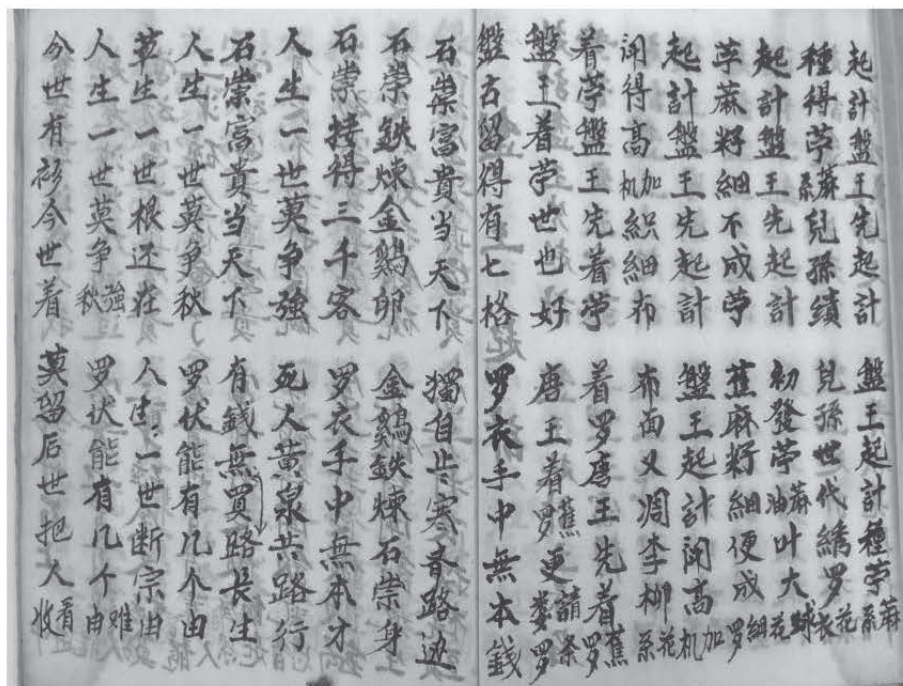 起計盤王先起計 盤王起計種苧麻系
種得苧蔴系兒孫績 兒孫世代綉罗花衣
起計盤王先起計 初發苧蔴油叶大球花
苧蔴籽細不成苧 蕉麻籽細便成細罗
起計盤王先起計 盤王起計闭高加机
闭得高加机織細布 布面又凋李柳花系
着苧盤王先着苧 着罗唐王先着蕉罗
盤王着苧世也好 唐王着蕉罗更
盤古留得有七格 罗衣手中無本錢
石崇富貴当天下 獨自寒路边
石崇鉄煉金鷄卵 金鷄鉄煉石崇身
石崇接得三千客 罗衣手中無本才
人生一世莫争強 死人黄泉共路行
石崇富貴当天下 有錢無買路長生
人生一世莫争秋 罗伏能有几个由
草生一世根还在 人生一世断宗由
人生一世莫争強秋 罗伏能有几个难由
今世有衫今世着 莫留后世把人看收